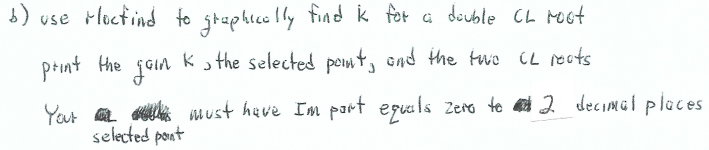 b) use rlocfind to graphically find k for a double CL root
print the gain k, the selected point, and the two CL roots
Your must have Im part equals zero to 2 decimal places
selected point